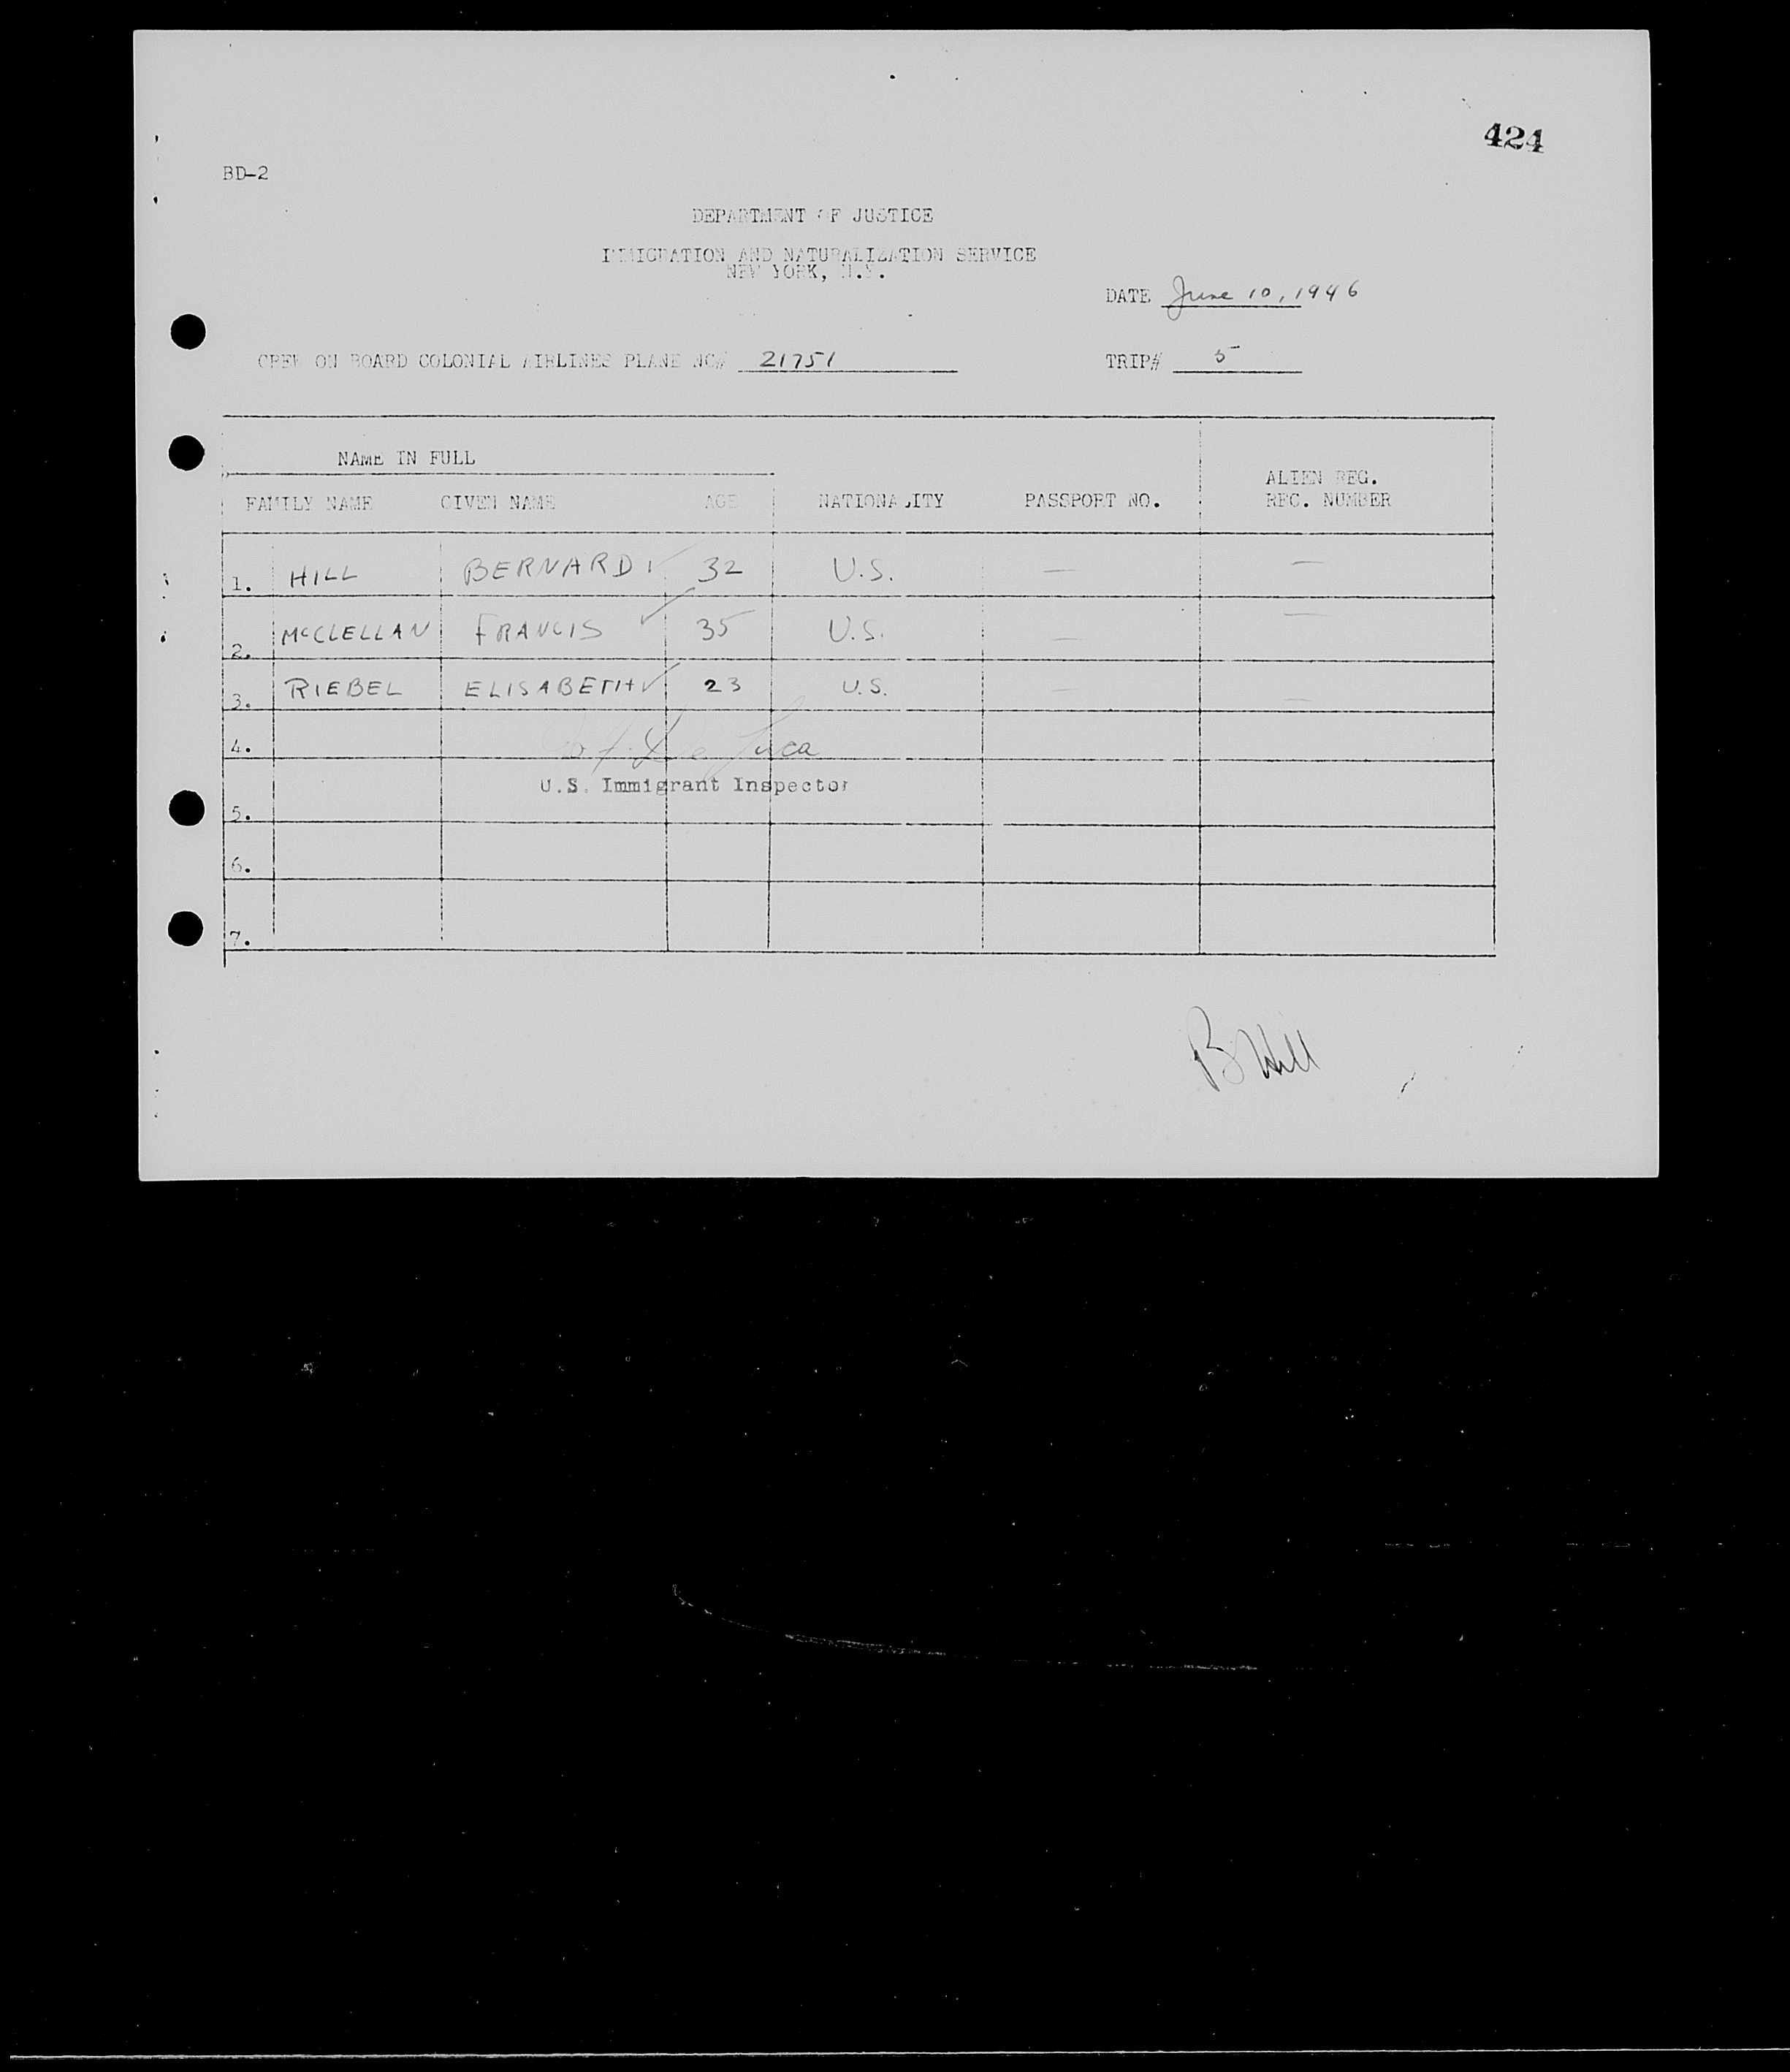 424
BD-2
DEPARTMENT OF JUSTICE
IMMIGRATION AND NATURALIZATION SERVICE
NEW YORK, N.Y.
DATE June 10, 1946
CREW ON BOARD COLONIAL AIRLINES PLANE NC# 21751 TRIP# 5
NAME IN FULL
ALIEN REG.
FAMILY NAME GIVEN NAME AGE NATIONALITY PASSPORT NO. REC. NUMBER
1. HILL BERNARD ✓ 32 U.S. — —
2. McCLELLAN FRANCIS ✓ 35 U.S. — —
3. RIEBEL ELISABETH ✓ 23 U.S. — —
4. De Luca
U.S. Immigrant Inspector
5.
6.
7.
B Hill